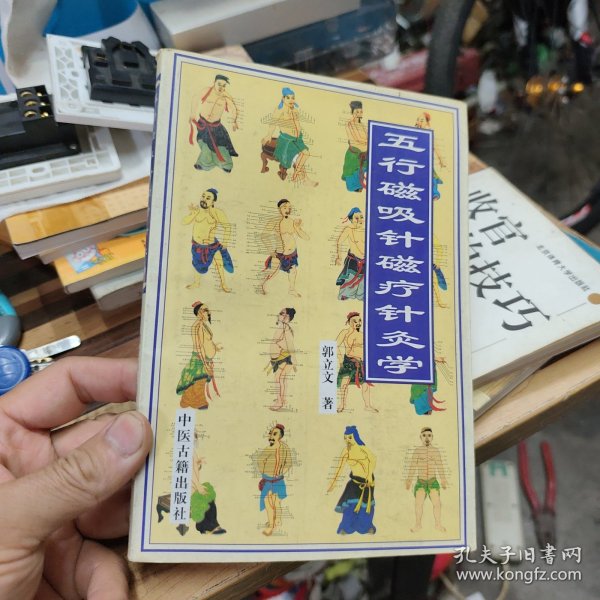 五行磁吸针磁疗针灸学
郭立文 著
中医古籍出版社
收官
技巧
北京体育大学出版社
孔夫子旧书网
www.kongfz.com